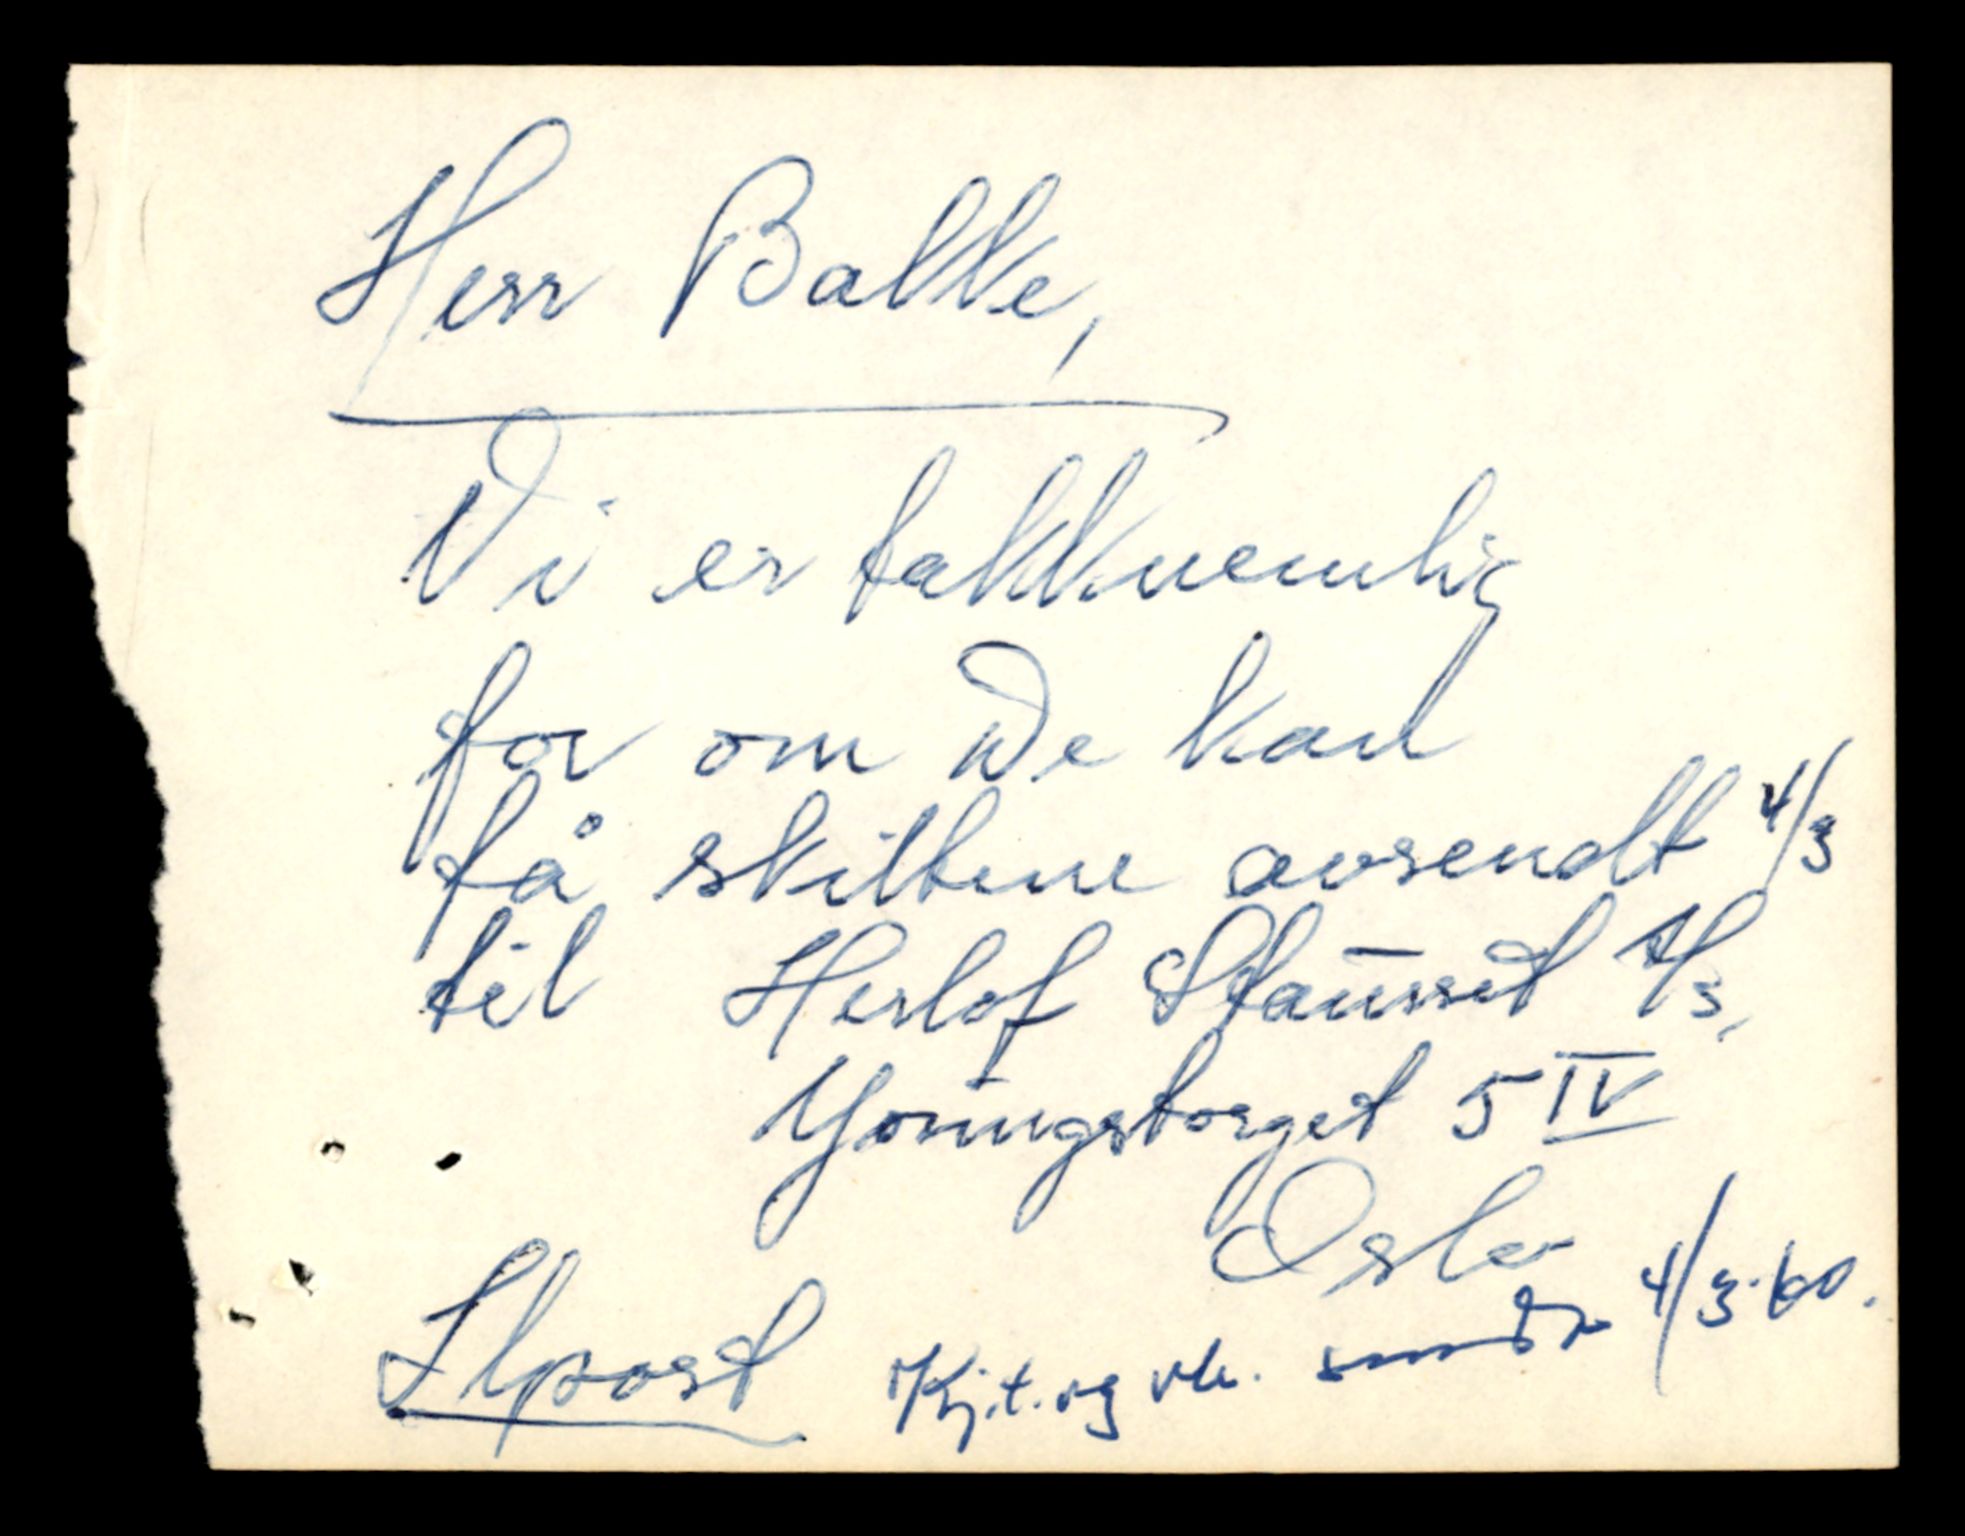 Herr Balke,
Vi er takknemlig
for om De kan
få skiltene avsendt 4/3
til Herlof Stausset A/S,
Youngstorget 5 IV
Oslo
Ilpost Kj.t. og vk. sendt 4/3-60.